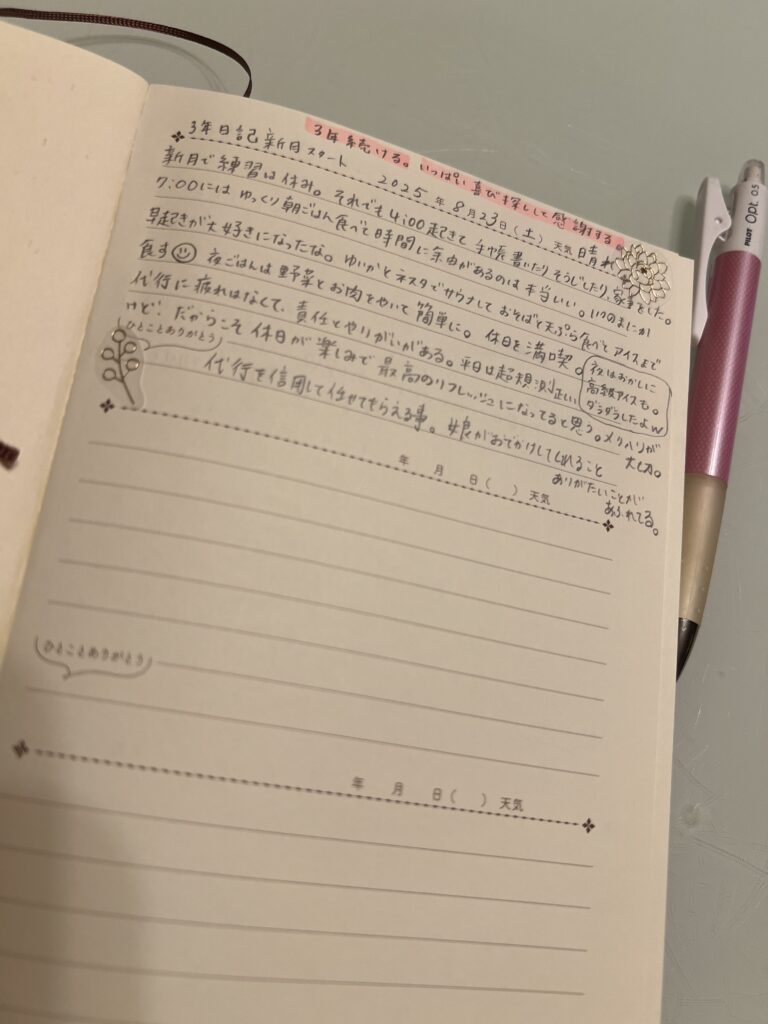 3年続ける。いっぱい喜び探しして感謝する。
3年日記新月スタート 2025年8月23日(土) 天気 晴れ
新月で練習は休み。それでも4:00起きて手帳書いたりそうじしたり、家事をした。
7:00にはゆっくり朝ごはん食べて時間に余裕があるのは本当いい。いつのまにか
早起きが大好きになったな。ゆいかとネスタでサウナしておそばと天ぷら食べてアイスまで
食す 夜ごはんは野菜とお肉をやいて簡単に。休日を満喫。
代行に疲れはなくて、責任とやりがいがある。平日は超規則正しい
けど!だからこそ休日が楽しみで最高のリフレッシュになってると思う。メリハリが
大切。
夜はおかしに
高級アイスも。
ダラダラしたよw
ひとことありがとう
代行を信用して任せてもらえる事。娘がおでかけしてくれること
ありがたいことが
あふれてる。
年 月 日( ) 天気
ひとことありがとう
年 月 日( ) 天気
PILOT Opt. 0.5